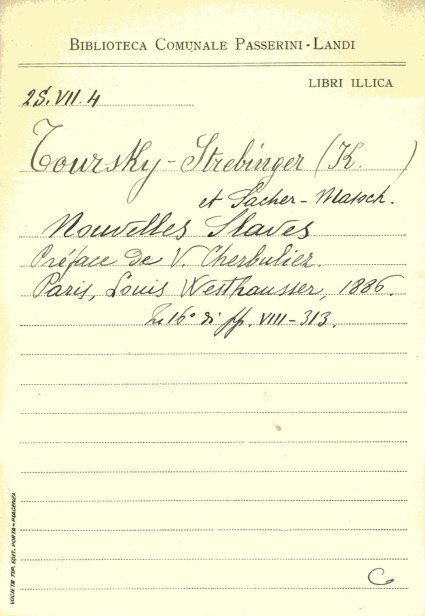 BIBLIOTECA COMUNALE PASSERINI-LANDI
LIBRI ILLICA
2S.VII.4
Toursky-Strebinger (K. )
et Sacher-Masoch.
Nouvelles Slaves
Préface de V. Cherbuliez.
Paris, Louis Westhausser, 1886.
In 16° di pp. VIII-313.
SOCIETÀ TIP. EDIT. PORTA-PIACENZA
C